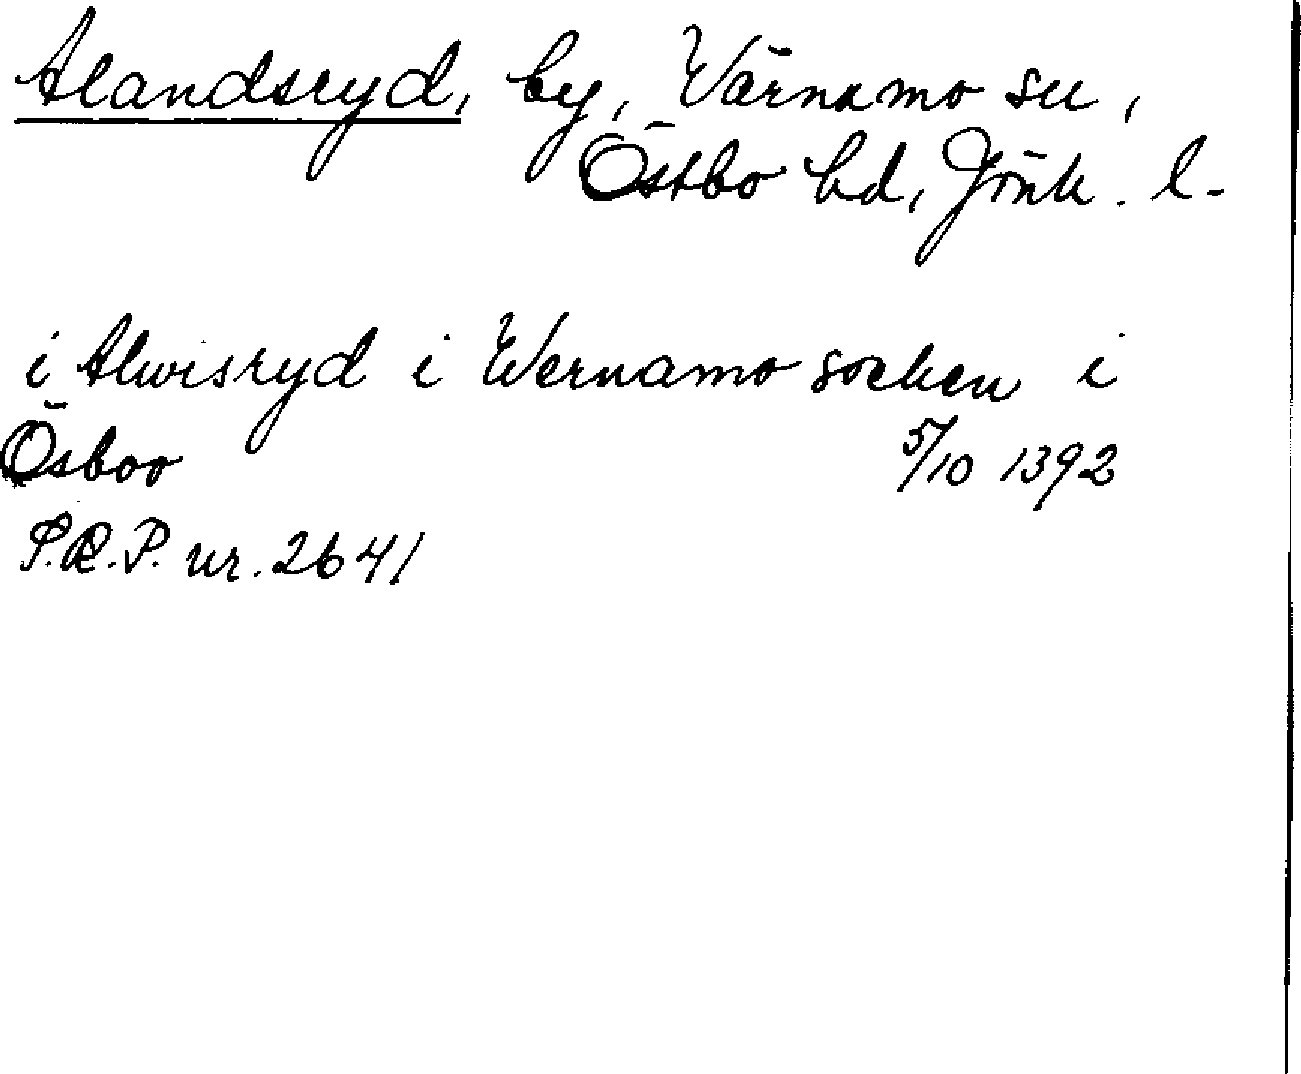 Alandsryd, by, Värnamo sn,
Östbo hd, Jönk. l.
i Alwisryd i Wernamo socken i
Ösboo 5/10 1392
S.R.P. nr. 2641